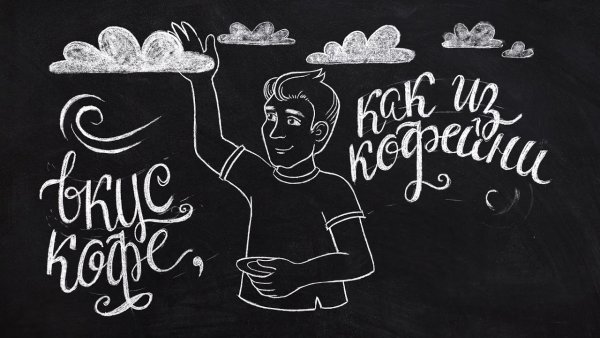 вкус
кофе,
как из
кофейни